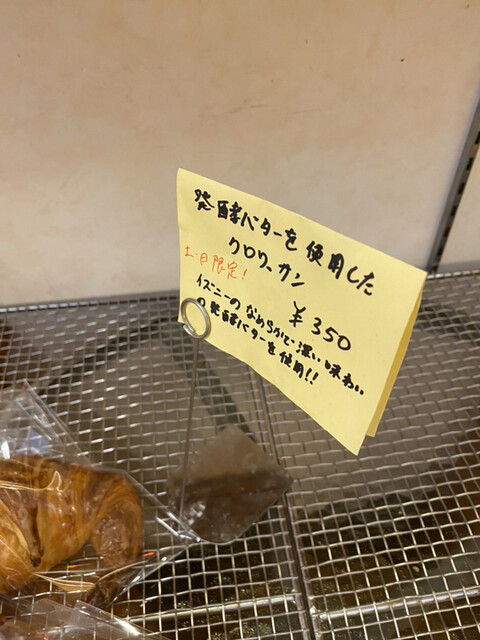 発酵バターを使用した
クロワッサン
土・日限定!
¥350
イズニーのなめらかで濃い味わい
の発酵バターを使用!!